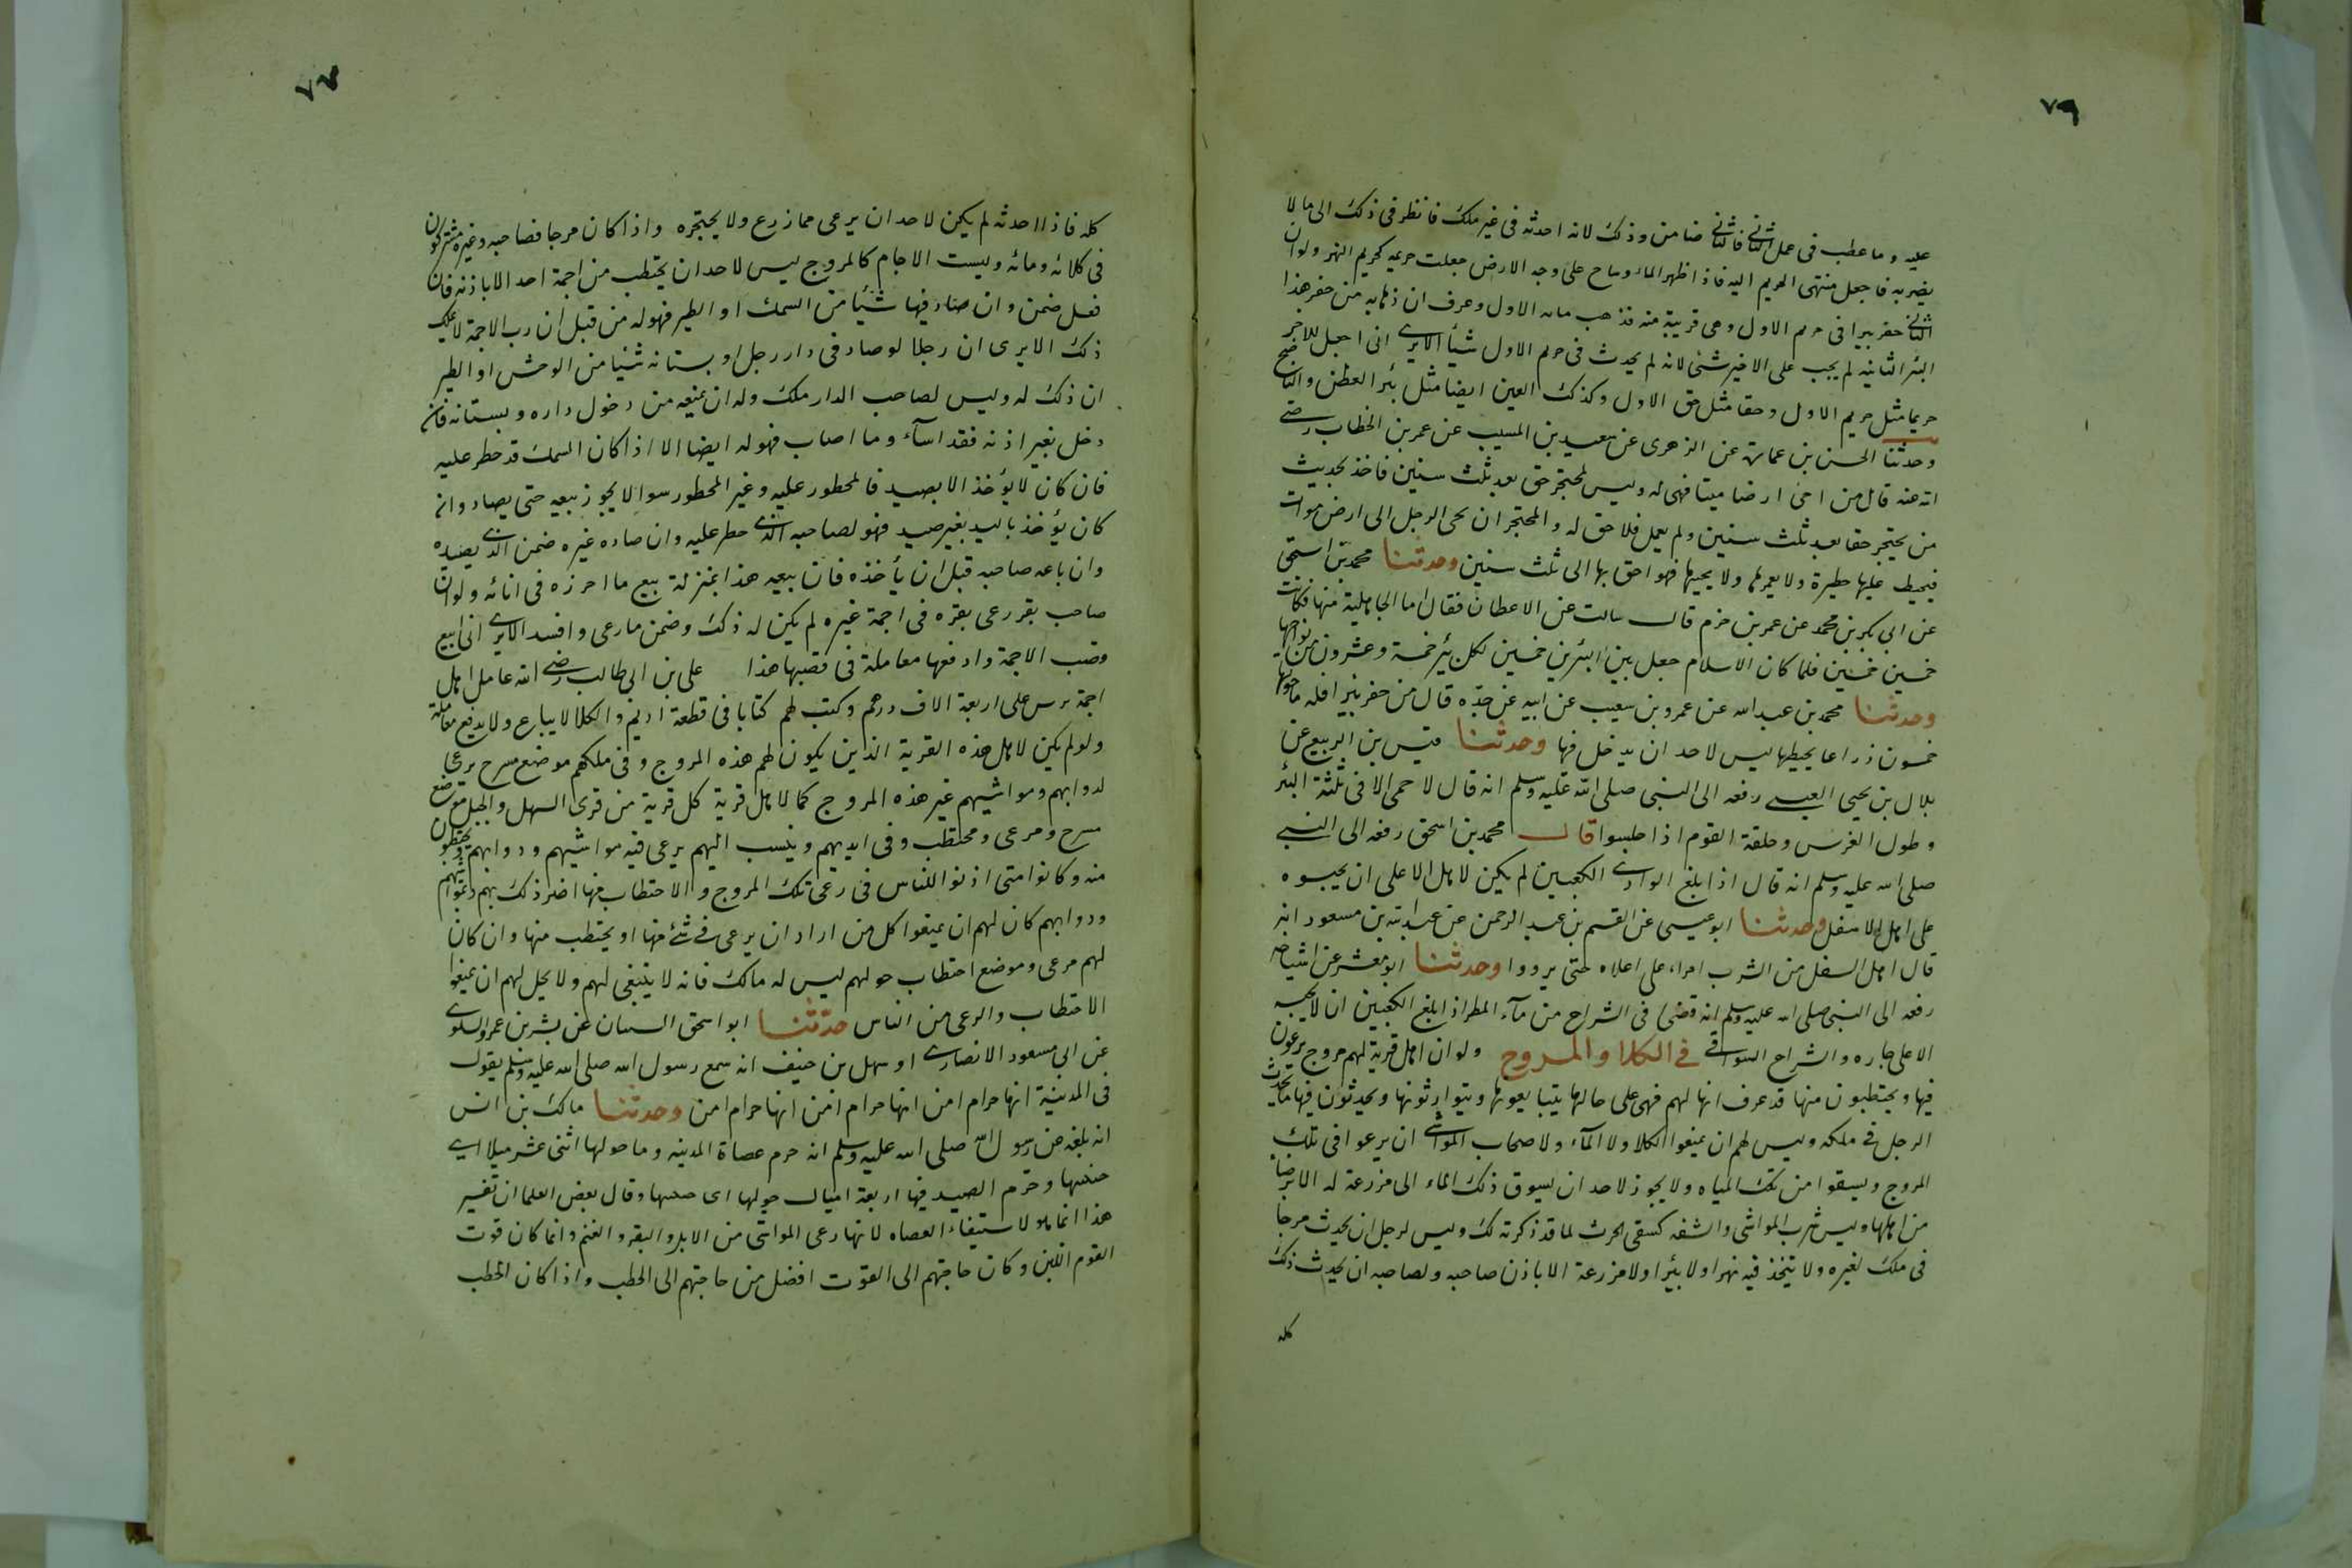 ٧٩
عليه وما عطب في عمل الثاني فالثاني ضامن وذلك لانه احدثه في غير ملك فانظر في ذلك الى ما لا
يضر به فاجعل منتهى الحريم اليه فاذا ظهر الماء وساح على وجه الارض جعلت حريمه كحريم النهر ولو ان
الثاني حفر بيرا في حريم الاول وهي قريبة منه فذهب ماء الاول وعرف ان ذهابه من حفر هذا
البئر الثانيه لم يجب على الاخير شئ لانه لم يحدث في حريم الاول شيأ الا يرى انى اجعل للاخر
حريما مثل حريم الاول وحقا مثل حق الاول وكذلك العين ايضا مثل بئر العطن والناضح
وحدثنا الحسن بن عمارة عن الزهرى عن سعيد بن المسيب عن عمر بن الخطاب رضى
الله عنه قال من احى ارضا ميتا فهى له وليس لمحتجر حق بعد ثلث سنين فاخذ بحديث
من يحتجر حقا بعد ثلث سنين ولم يعمل فلا حق له والمحتجر ان يحى الرجل الى ارض موات
فيحيط عليها حظيرة ولا يعمرها ولا يحييها فهو احق بها الى ثلث سنين وحدثنا محمد بن اسحق
عن ابي بكر بن محمد عن عمر بن حزم قال سالت عن الاعطان فقال اما الجاهلية منها فكانت
خمسين خمسين فلما كان الاسلام جعل بين البئرين خمسين لكل بئر خمسة وعشرون من نواحيها
وحدثنا محمد بن عبد الله عن عمرو بن شعيب عن ابيه عن جده قال من حفر بئرا فله ما حولها
خمسون ذراعا يحيطها ليس لاحد ان يدخل فها وحدثنا قيس بن الربيع عن
بلال بن يحيى العبسى رفعه الى النبى صلى الله عليه وسلم انه قال لا حمى الا في ثلثة البئر
وطول الفرس وحلقة القوم اذا جلسوا قال محمد بن اسحق رفعه الى النبي
صلى الله عليه وسلم انه قال اذا بلغ الوادى الكعبين لم يكن لاهل الاعلى ان يحبسوه
على اهل الاسفل وحدثنا ابو عيسى عن القسم بن عبد الرحمن عن عبد الله بن مسعود انه
قال اهل السفل من الشرب امراء على اعلاه حتى يرووا وحدثنا ابو معشر عن اشياخه
رفعه الى النبى صلى الله عليه وسلم انه قضى في الشراج من مآء المطر اذا بلغ الكعبين ان لا يحبسه
الاعلى جاره والشراج السواقي في الكلا والمروج ولو ان اهل قرية لهم مروج يرعون
فيها ويحتطبون منها قد عرف انها لهم فهى على حالها يتبايعونها ويتوارثونها ويحدثون فيها ما يحدث
الرجل في ملكه وليس لهم ان يمنعوا الكلا ولا المآء ولاصحاب المواشى ان يرعوا في تلك
المروج ويسقوا من تلك المياه ولا يجوز لاحد ان يسوق ذلك الماء الى مزرعة له الا برضا
من اهلها وليس شرب المواشى والشفه كسقى الحرث لما قد ذكرته لك وليس لرجل ان يحدث مرجا
في ملك لغيره ولا يتخذ فيه نهرا ولا بئرا ولا مزرعة الا باذن صاحبه ولصاحبه ان يحدث ذلك
كله
كله فاذا احدثه لم يكن لاحد ان يرعى مما زرع ولا يحتجره واذا كان مرجا فصاحبه وغيره مشتركون
في كلائه ومائه وليست الاجام كالمروج ليس لاحد ان يحتطب من اجمة احد الا باذنه فان
فعل ضمن وان صاد فيها شيأ من السمك او الطير فهو له من قبل ان رب الاجمة لا يملك
ذلك الا يرى ان رجلا لو صاد في دار رجل او بستانه شيئا من الوحش او الطير
ان ذلك له وليس لصاحب الدار ملك وله ان يمنعه من دخول داره وبستانه فان
دخل بغير اذنه فقد اسآء وما اصاب فهو له ايضا الا اذا كان السمك قد حظر عليه
فان كان لا يؤخذ الا بصيد فالمحظور عليه وغير المحظور سواء لا يجوز بيعه حتى يصاد وان
كان يؤخذ باليد بغير صيد فهو لصاحبه الذى حظر عليه وان صاده غيره ضمن الذى يصيده
وان باعه صاحبه قبل ان يأخذه فان بيعه هذا بمنزلة بيع ما احرزه في انائه ولو ان
صاحب بقر رعى بقره في اجمة غيره لم يكن له ذلك وضمن ما رعى وافسد الا يرى انى ابيع
وقصب الاجمة وادفعها معاملة في قصبها هذا على بن ابي طالب رضى الله عامل اهل
اجمة برس على اربعة الاف درهم وكتب لهم كتابا في قطعة اديم والكلا لا يباع ولا يدفع معاملة
ولو لم يكن لاهل هذه القرية الذين يكون لهم هذه المروج وفي ملكهم موضع مسرح ومرعى
لدوابهم ومواشيهم غير هذه المروج كما لاهل قرية كل قرية من قرى السهل والجبل موضع
مسرح ومرعى ومحتطب وفي ايديهم وينسب اليهم يرعى فيه مواشيهم ودوابهم ويحتطبون
منه وكانوا متى اذنوا للناس في رعى تلك المروج والاحتطاب منها اضر ذلك بهم وبمواشيهم
ودوابهم كان لهم ان يمنعوا كل من اراد ان يرعى في شئ منها او يحتطب منها وان كان
لهم مرعى وموضع احتطاب حولهم ليس له مالك فانه لا ينبغى لهم ولا يحل لهم ان يمنعوا
الاحتطاب والرعى من الناس حدثنا ابو اسحق السبان عن بشر بن عمرو السلوى
عن ابي مسعود الانصارى او سهل بن حنيف انه سمع رسول الله صلى الله عليه وسلم يقول
في المدينة انها حرام امن انها حرام امن انها حرام امن وحدثنا مالك بن انس
انه بلغه عن رسول الله صلى الله عليه وسلم انه حرم عضاة المدينه وما حولها اثنى عشر ميلا اى
وحرم الصيد فيها اربعة اميال حولها اى وقال بعض العلما ان تفسير
هذا انما هو لاستبقاء العضاه لانها رعى المواشى من الابل والبقر والغنم وانما كان قوت
القوم اللبن وكان حاجتهم الى القوت افضل من حاجتهم الى الحطب واذا كان الحطب